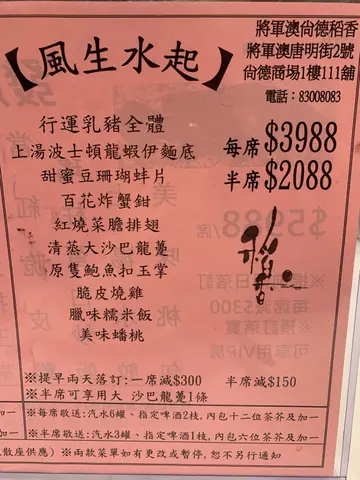 將軍澳尙德稻香
將軍澳唐明街2號
尙德商場1樓111舖
電話：83008083
【風生水起】
行運乳豬全體
上湯波士頓龍蝦伊麵底
甜蜜豆珊瑚蚌片
百花炸蟹鉗
紅燒菜膽排翅
清蒸大沙巴龍躉
原隻鮑魚扣玉掌
脆皮燒雞
臘味糯米飯
美味蟠桃
每席$3988
半席$2088
稻香
※提早兩天落訂：一席減$300 半席減$150
※半席可享用大 沙巴龍躉1條
加一 ※每席敬送：汽水6罐、指定啤酒2枝，內包十二位茶芥及加一
加一 ※半席敬送：汽水3罐、指定啤酒1枝，內包六位茶芥及加一
散座供應）※兩款菜單如有更改或暫停，恕不另行通知